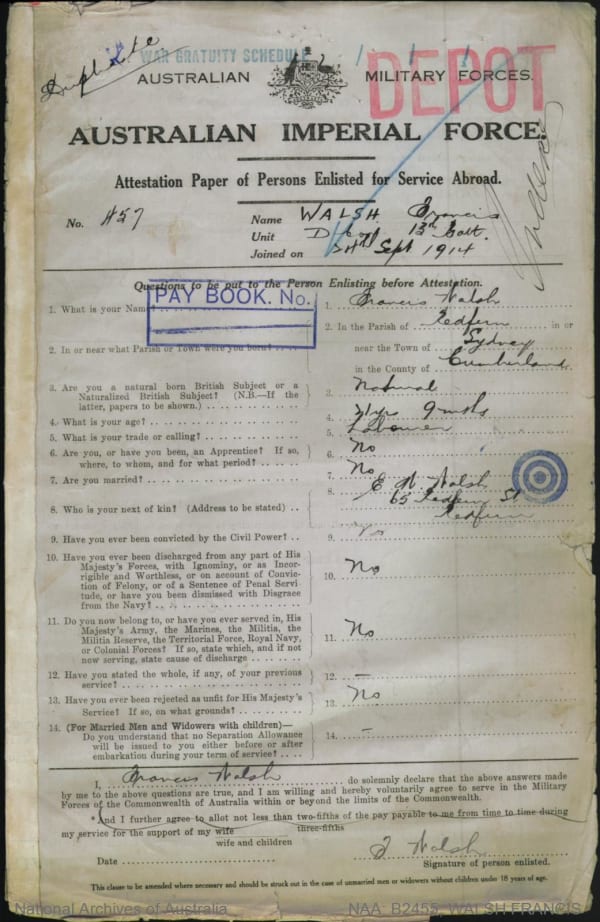 Duplicate
WAR GRATUITY SCHEDULE
DEPOT
AUSTRALIAN MILITARY FORCES.
AUSTRALIAN IMPERIAL FORCE.
Attestation Paper of Persons Enlisted for Service Abroad.
No. 457 Name WALSH Francis
Unit D Coy 13th Batt.
Joined on Sept 1914
Questions to be put to the Person Enlisting before Attestation.
PAY BOOK. No.
1. What is your Name? 1. Francis Walsh
2. In or near what Parish or Town were you born? 2. In the Parish of Redfern in or
near the Town of Sydney
in the County of Cumberland
3. Are you a natural born British Subject or a
Naturalized British Subject? (N.B.—If the
latter, papers to be shown.) 3. Natural
4. What is your age? 4. 21yrs 9mths
5. What is your trade or calling? 5. Labourer
6. Are you, or have you been, an Apprentice? If so,
where, to whom, and for what period? 6. No
7. Are you married? 7. No
8. Who is your next of kin? (Address to be stated) 8. E Walsh
65 Redfern St
Redfern
9. Have you ever been convicted by the Civil Power? 9. No
10. Have you ever been discharged from any part of His
Majesty's Forces, with Ignominy, or as Incor-
rigible and Worthless, or on account of Convic-
tion of Felony, or of a Sentence of Penal Servi-
tude, or have you been dismissed with Disgrace
from the Navy? 10. No
11. Do you now belong to, or have you ever served in, His
Majesty's Army, the Marines, the Militia, the
Militia Reserve, the Territorial Force, Royal Navy,
or Colonial Forces? If so, state which, and if not
now serving, state cause of discharge 11. No
12. Have you stated the whole, if any, of your previous
service? 12. —
13. Have you ever been rejected as unfit for His Majesty's
Service? If so, on what grounds? 13. No
14. (For Married Men and Widowers with children)—
Do you understand that no Separation Allowance
will be issued to you either before or after
embarkation during your term of service? 14. –
I, Francis Walsh do solemnly declare that the above answers made
by me to the above questions are true, and I am willing and hereby voluntarily agree to serve in the Military
Forces of the Commonwealth of Australia within or beyond the limits of the Commonwealth.
*And I further agree to allot not less than two-fifths of the pay payable to me from time to time during
three-fifths
my service for the support of my wife
wife and children
F Walsh
Date Signature of person enlisted.
This clause to be amended where necessary and should be struck out in the case of unmarried men or widowers without children under 18 years of age.
National Archives of Australia NAA: B2455, WALSH FRANCIS